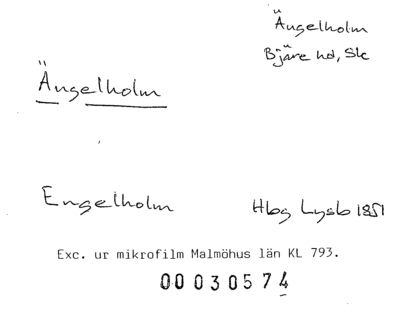 Ängelholm
Bjäre hd, Sk
Ängelholm
Engelholm
Hbg Lysb 1851
Exc. ur mikrofilm Malmöhus län KL 793.
00030574